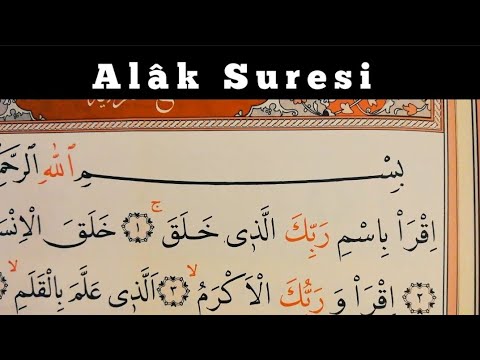 Alâk Suresi
بِسْمِ اللّٰهِ الرَّحْمٰ
اِقْرَأْ بِاسْمِ رَبِّكَ الَّذٖى خَلَقَۚ ﴿١﴾ خَلَقَ الْاِنْسَ
﴿٢﴾ اِقْرَأْ وَ رَبُّكَ الْاَكْرَمُۙ ﴿٣﴾ اَلَّذٖى عَلَّمَ بِالْقَلَمِۙ